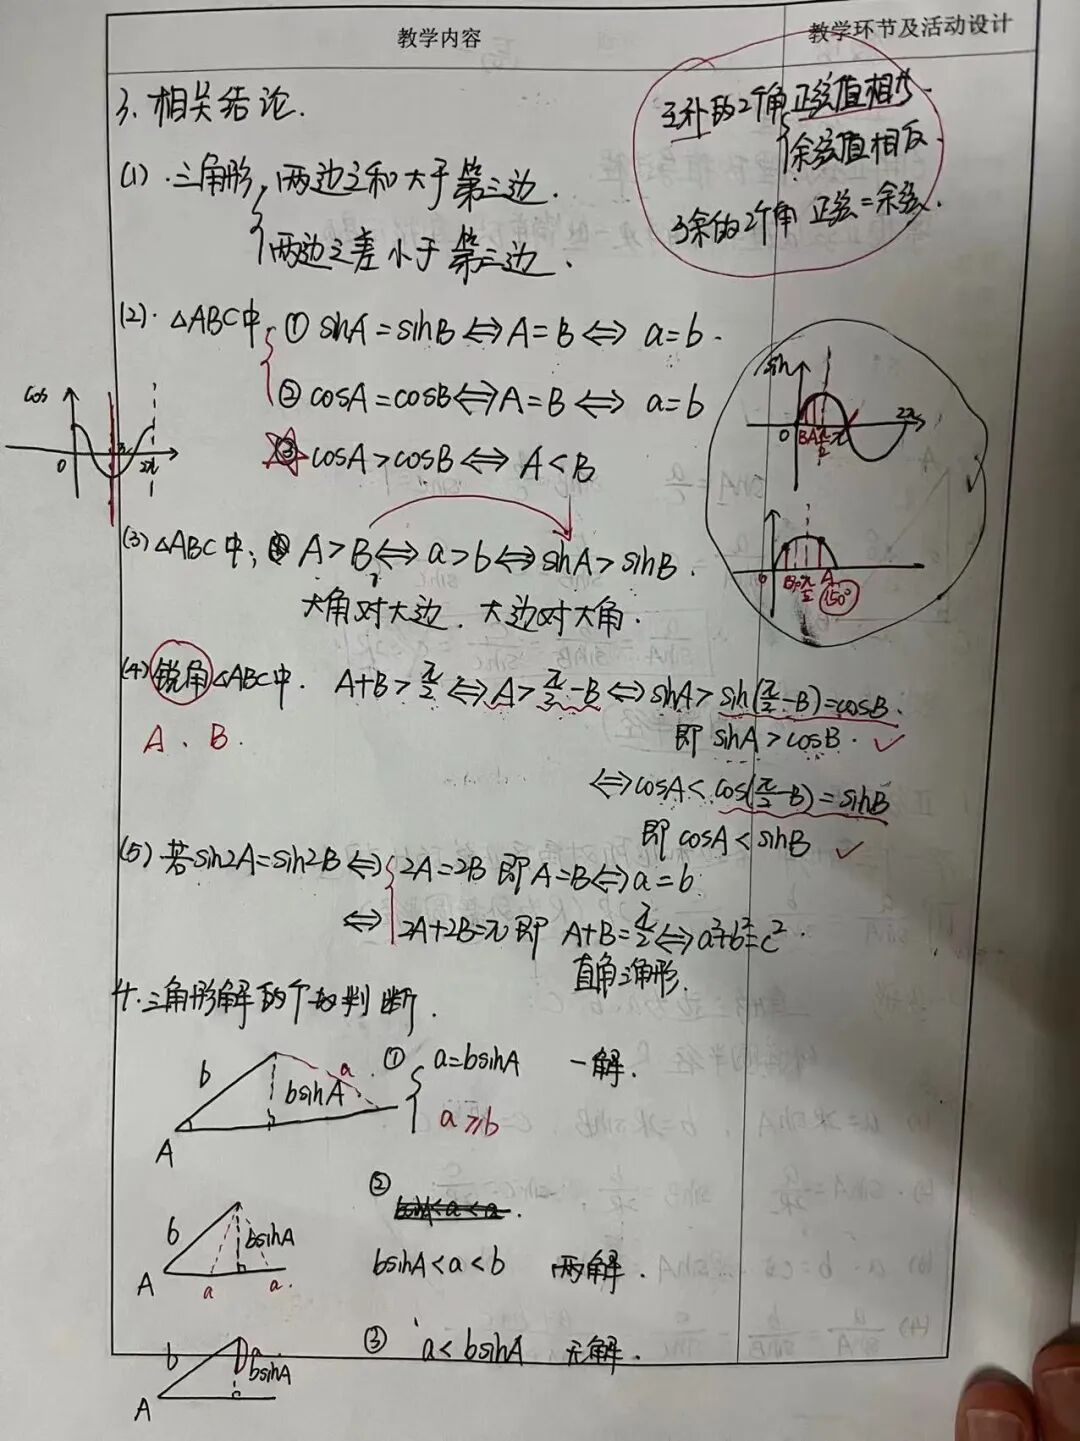 教学内容
教学环节及活动设计
3.相关结论.
互补的2个角正弦值相等.
余弦值相反.
互余的2个角 正弦=余弦.
(1).三角形,两边之和大于第三边.
两边之差小于第三边.
(2).△ABC中,①sinA=sinB⇔A=B⇔a=b.
②cosA=cosB⇔A=B⇔a=b
③cosA>cosB⇔A<B
cos
0
2π
sin
0
B A π/2 π
2π
0
B π/2 A
150°
(3)△ABC中;A>B⇔a>b⇔sinA>sinB.
大角对大边.大边对大角.
(4)锐角△ABC中.A+B>π/2⇔A>π/2-B⇔sinA>sin(π/2-B)=cosB.
A、B.
即sinA>cosB.✓
⇔cosA<cos(π/2-B)=sinB
即cosA<sinB ✓
(5)若sin2A=sin2B⇔2A=2B即A=B⇔a=b
⇔2A+2B=π即A+B=π/2⇔a²+b²=c².
直角三角形.
4.三角形解的个数判断.
b
bsinA
a
A
①a=bsinA 一解.
a≥b
②
b
bsinA
A
a a.
bsinA<a<b 两解.
b
a
bsinA
A
③a<bsinA 无解.